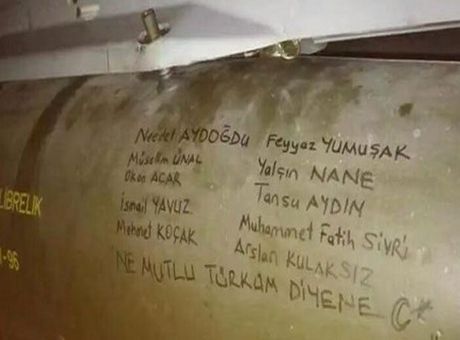 Necdet AYDOĞDU
Müsellim ÜNAL
Okan ACAR
İsmail YAVUZ
Mehmet KOÇAK
Feyyaz YUMUŞAK
Yalçın NANE
Tansu AYDIN
Muhammet Fatih SİVRİ
Arslan KULAKSIZ
NE MUTLU TÜRKÜM DİYENE C*
LİBRELİK
-96